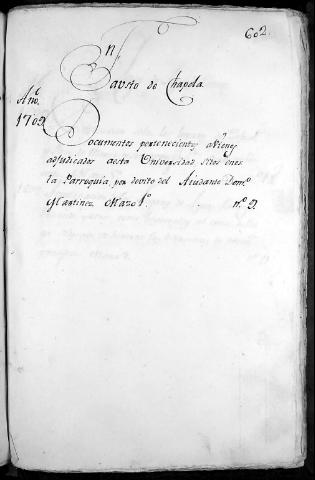 602.
Fausto de Chapela
Año.
1709.
Documentos pertenecientes a Vienes
adjudicados aesta Universidad sitos enes
ta Parroquia, por devito del Aiudante Dom.º
Martinez. Mazo 1º. n.º 9.